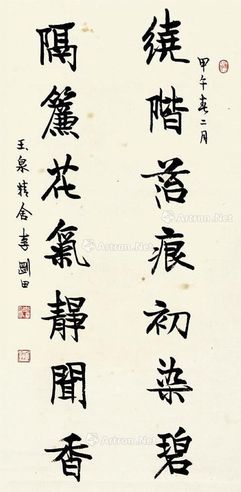 甲午春二月
繞階苔痕初染碧
隔簾花氣靜聞香
玉泉精舍李剛田
Artron.Net
Artron.Net
Artron.Net